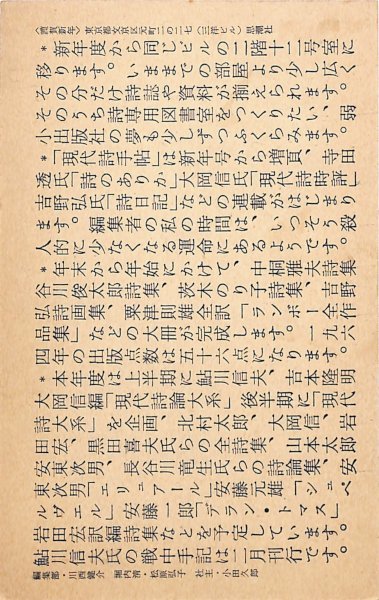 〈謹賀新年〉東京都文京区元町一の二七〈三洋ビル〉思潮社
＊新年度から同じビルの二階十二号室に
移ります。いままでの部屋より少し広く
その分だけ詩誌や資料が揃えられます。
そのうち詩専用図書室をつくりたい、弱
小出版社の夢も少しずつふくらみます。
＊「現代詩手帖」は新年号から増頁、寺田
透氏「詩のありか」大岡信氏「現代詩時評」
吉野弘氏「詩日記」などの連載がはじまり
ます。編集者の私の時間は、いっそう殺
人的に少なくなる運命にあるようです。
＊年末から年始にかけて、中桐雅夫詩集
谷川俊太郎詩集、茨木のり子詩集、吉野
弘詩画集、粟津則雄全訳「ランボー全作
品集」などの大冊が完成します。一九六
四年の出版点数は五十六点になります。
＊本年度は上半期に鮎川信夫、吉本隆明
大岡信編「現代詩論大系」後半期に「現代
詩大系」を企画、北村太郎、大岡信、岩
田宏、黒田喜夫氏らの全詩集、山本太郎
安東次男、長谷川竜生氏らの詩論集、安
東次男「エリュアール」安藤元雄「シュペ
ルヴェル」安藤一郎「デラン・トマス」
岩田宏訳編詩集などを予定しています。
鮎川信夫氏の戦中手記は二月刊行です。
編集部・川西健介 堀内清・松原弘子 社主・小田久郎